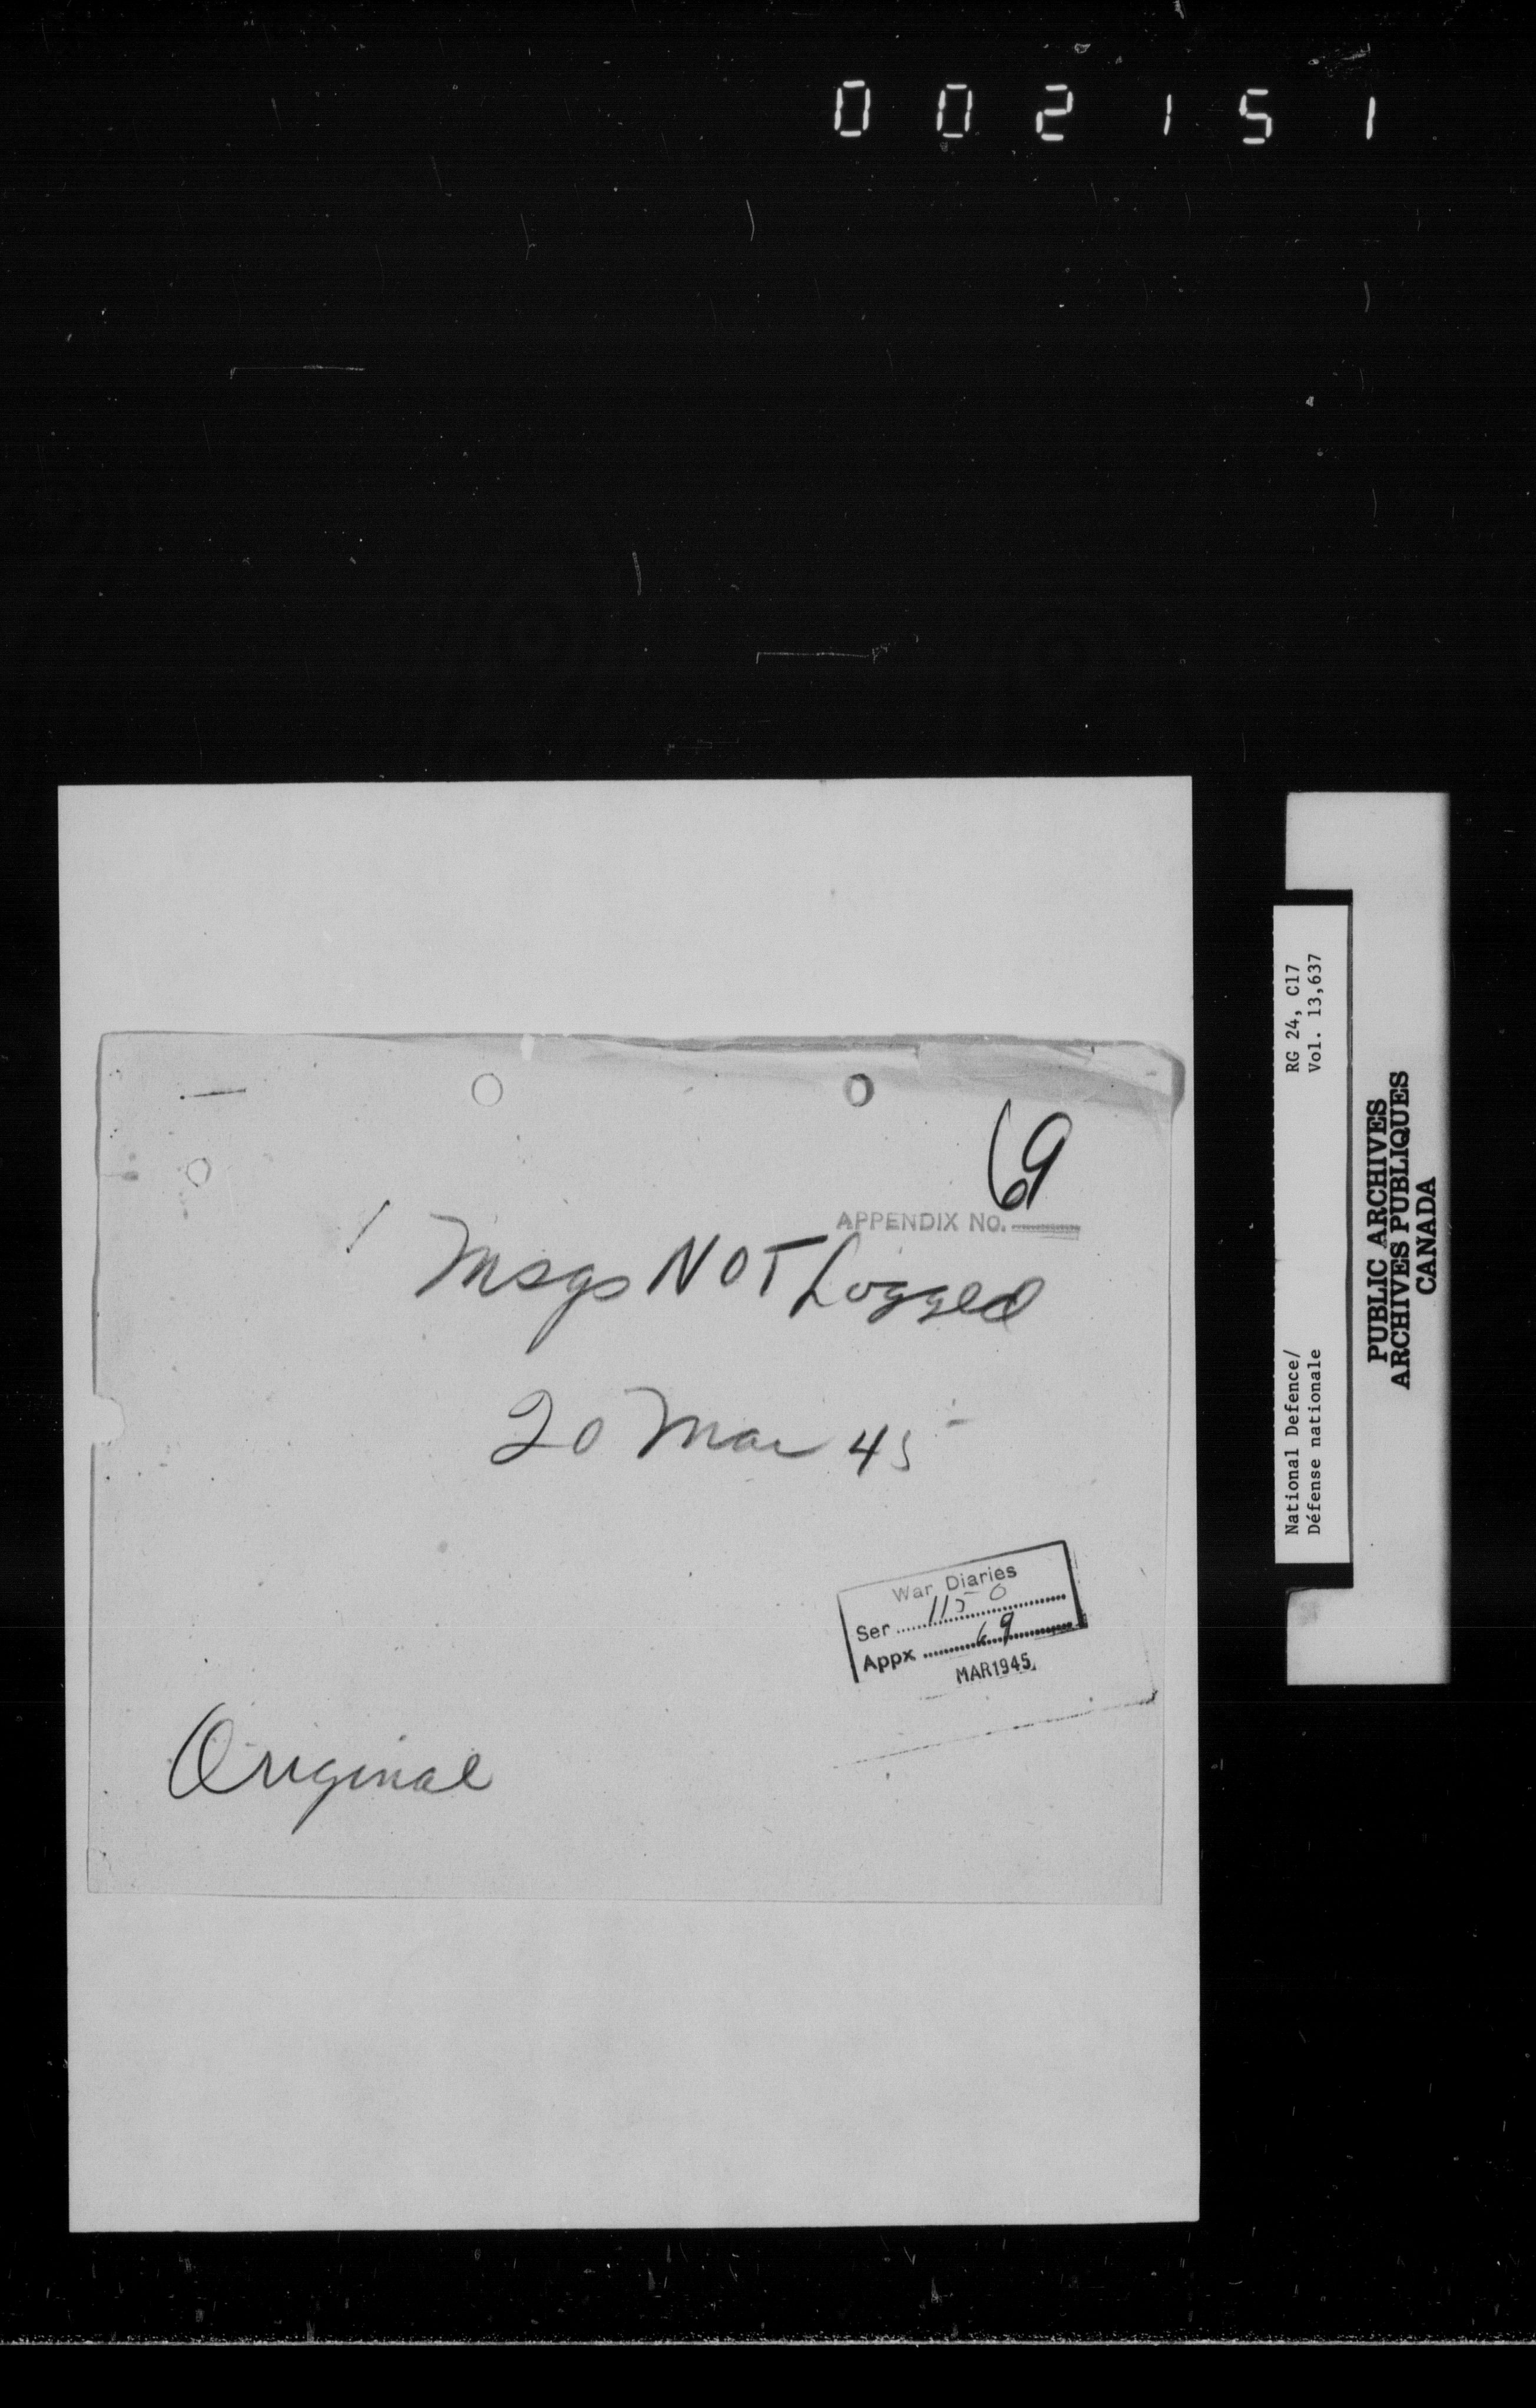 002151
69
APPENDIX NO.
Msgs NOT Logged
20 Mar 45
War Diaries
Ser 1150
Appx 69
MAR 1945
Original
RG 24, C17
Vol. 13,637
National Defence/
Défense nationale
PUBLIC ARCHIVES
ARCHIVES PUBLIQUES
CANADA